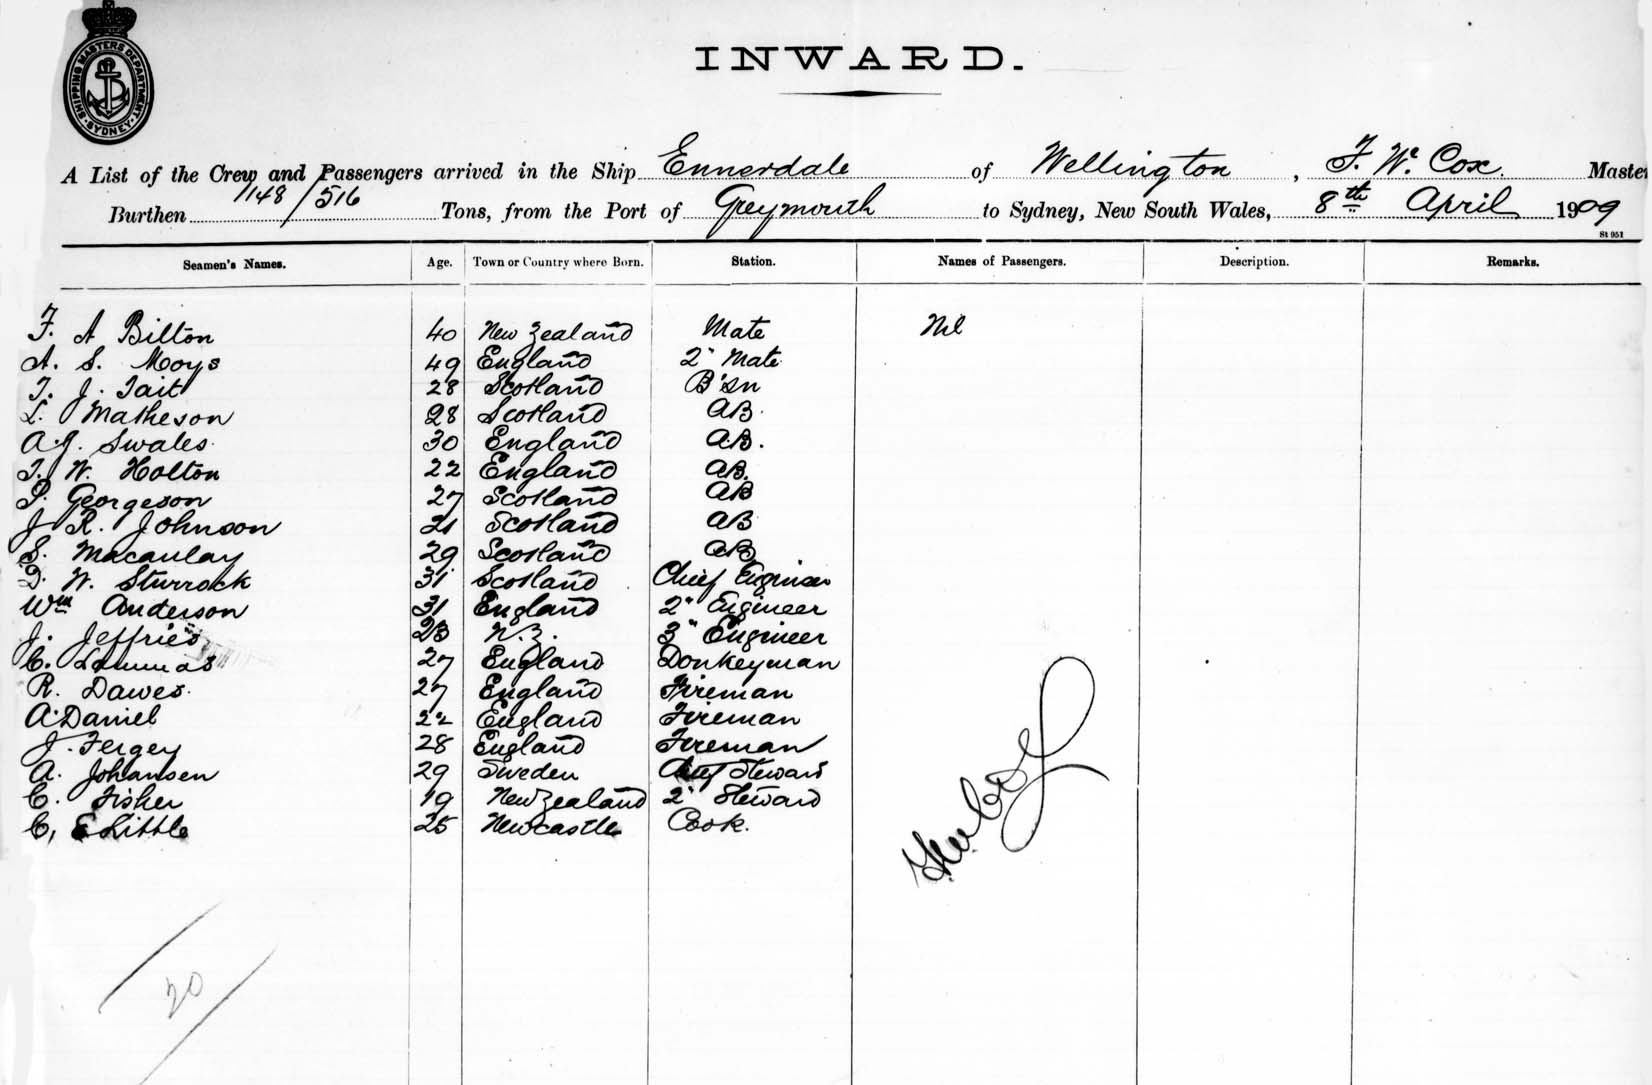 SHIPPING MASTERS DEPARTMENT SYDNEY
INWARD.
A List of the Crew and Passengers arrived in the Ship Ennerdale of Wellington, F. W. Cox. Master
Burthen 1148/516 Tons, from the Port of Greymouth to Sydney, New South Wales, 8th April 1909
St 951
Seamen's Names. Age. Town or Country where Born. Station. Names of Passengers. Description. Remarks.
F. A Bilton 40 New Zealand Mate Nil
A. S. Moys 49 England 2" Mate
T. J. Tait 28 Scotland B'sn
L. Matheson 28 Scotland AB.
A.J. Swales. 30 England AB.
T. W. Holton 22 England AB.
P. Georgeson 27 Scotland AB
J R. Johnson 21 Scotland AB
S. Macaulay 29 Scotland AB
D. W. Sturrock 31 Scotland Chief Engineer
Wm Anderson 31 England 2" Engineer
J. Jeffries 23 N.Z. 3" Engineer
C. Lammas 27 England Donkeyman
R. Dawes. 27 England Fireman
A. Daniel 22 England Fireman
J. Fergey 28 England Fireman
A. Johansen 29 Sweden Chief Steward
C. Fisher 19 New Zealand 2" Steward
C, E Little 25 Newcastle Cook.
20